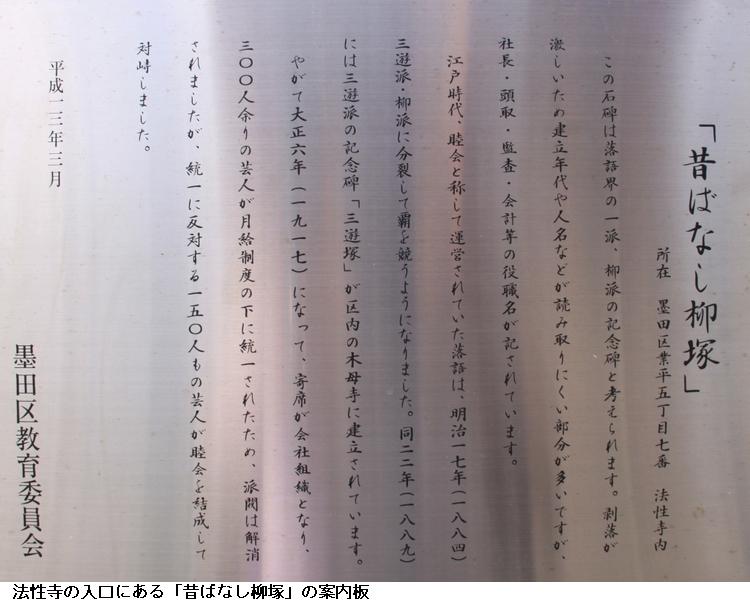 「昔ばなし柳塚」
所在　墨田区業平五丁目七番　法性寺内
この石碑は落語界の一派、柳派の記念碑と考えられます。剥落が
激しいため建立年代や人名などが読み取りにくい部分が多いですが、
社長・頭取・監査・会計等の役職名が記されています。
江戸時代、睦会と称して運営されていた落語は、明治一七年（一八八四）
三遊派・柳派に分裂して覇を競うようになりました。同二二年（一八八九）
には三遊派の記念碑「三遊塚」が区内の木母寺に建立されています。
やがて大正六年（一九一七）になって、寄席が会社組織となり、
三〇〇人余りの芸人が月給制度の下に統一されたため、派閥は解消
されましたが、統一に反対する一五〇人もの芸人が睦会を結成して
対峙しました。
平成一三年三月
墨田区教育委員会
法性寺の入口にある「昔ばなし柳塚」の案内板